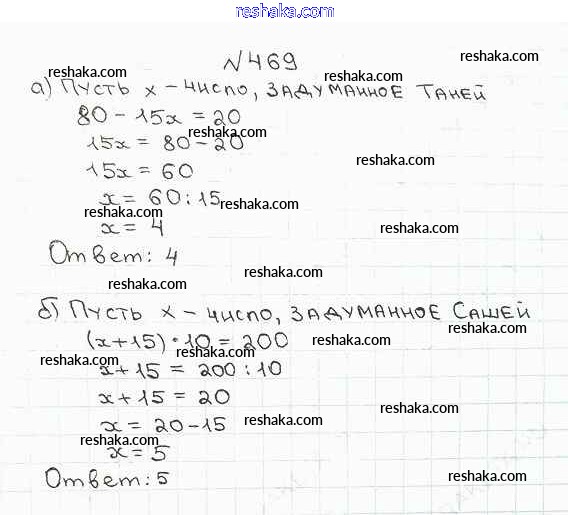 reshaka.com
№469
reshaka.com reshaka.com
а) Пусть x – число, задуманное Таней
reshaka.com reshaka.com
80 – 15x = 20
reshaka.com
15x = 80 – 20
reshaka.com
15x = 60
x = 60 : 15
reshaka.com
reshaka.com
x = 4
reshaka.com
Ответ: 4
reshaka.com
reshaka.com
reshaka.com
б) Пусть x – число, задуманное Сашей
reshaka.com
(x+15) · 10 = 200
reshaka.com
reshaka.com
reshaka.com
x+15 = 200 : 10
x+15 = 20
reshaka.com
x = 20 – 15
reshaka.com
reshaka.com
x = 5
Ответ: 5
reshaka.com